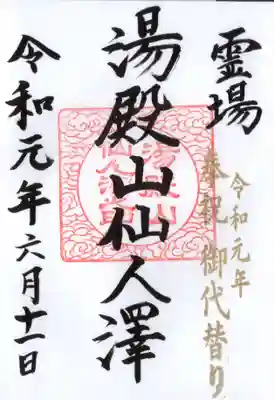 霊場
令和元年
奉祝 御代替り
湯殿山仙人澤
令和元年六月十一日